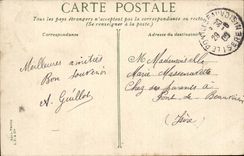 CARTE POSTALE
Tous les pays étrangers n'acceptent pas la correspondance au recto
(Se renseigner à la poste)
Correspondance
Adresse du destinataire
Meilleures amitiés
Bon Souvenir
A. Guillot
M Mademoiselle
Marie
Chez ses parents à
Pont de Beauvoisin
(Isère)